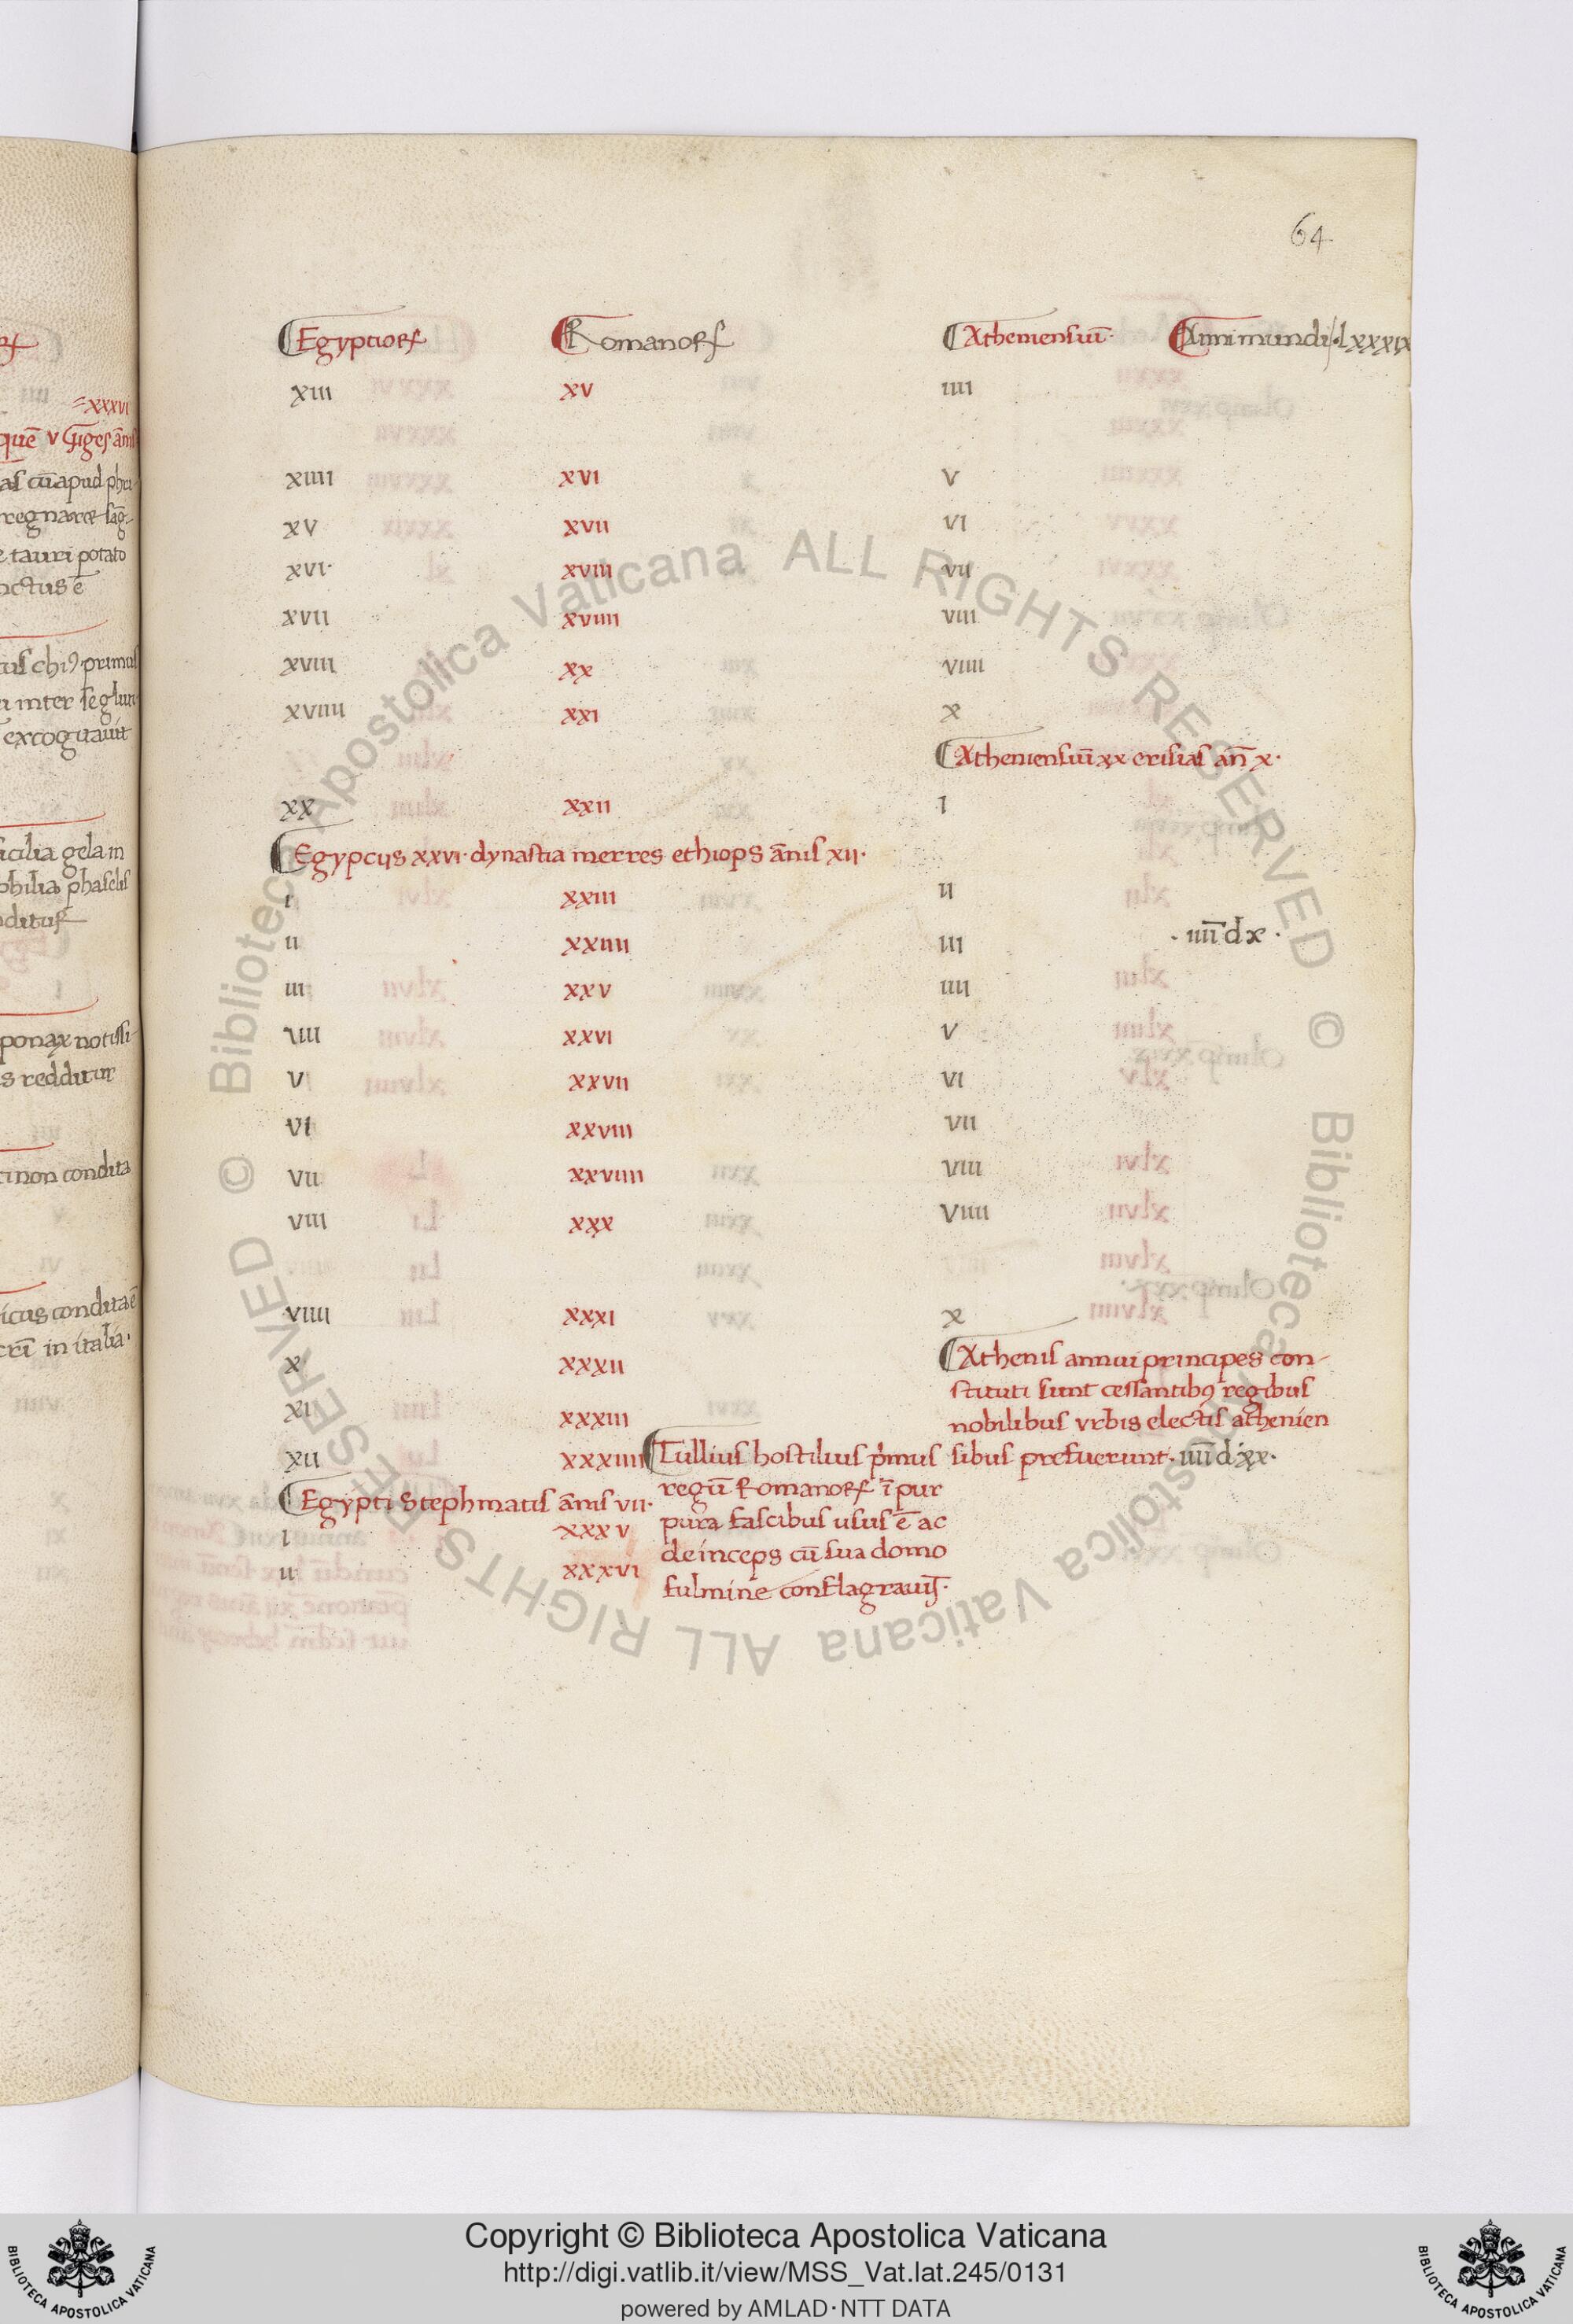 64
Egyptiorꝝ Romanorꝝ Atheniensiũ· Anni mundi ·lxxxix
xiii xv iiii
xiiii xvi v
xv xvii vi
xvi· xviii vii
xvii xviiii viii
xviii xx viiii
xviiii xxi x
Atheniensiũ xx erisias añ x·
xx xxii i
Egypciis xxvi· dynastia merres ethiops ãnis xii·
i xxiii ii
ii xxiiii iii · iiii̅ dx ·
iii xxv iiii
iiii xxvi v
v xxvii vi
vi xxviii vii
vii xxviiii viii
viii xxx viiii
viiii xxxi x
x xxxii Athenis annui principes con-
stituti sunt cessantibꝯ regibus
xi xxxiii nobilibus urbis electis athenien
xii xxxiiii Tullius hostilius p̃mus sibus prefuerunt· iiii̅ dxx·
Egypti Stephmatis ãnis vii· regũ Romanorꝝ ĩ pur
i xxxv pura fascibus usus ẽ ac
deinceps cũ sua domo
ii xxxvi fulmine conflagravit̃·
xxxvi
quẽ v Giges ãnis
as cũ apud phri
regnaret sãg-
e tauri potato
nctus ẽ
us chiꝯ primus
inter se glun
excogitavit
icilia gela in
philia phaselis
nditur
ponax notissi-
s redditur
non condita
icus condita ẽ
cri in italia·
© Biblioteca Apostolica Vaticana ALL RIGHTS RESERVED
© Biblioteca Apostolica Vaticana ALL RIGHTS RESERVED
Copyright © Biblioteca Apostolica Vaticana
http://digi.vatlib.it/view/MSS_Vat.lat.245/0131
powered by AMLAD·NTT DATA
BIBLIOTECA APOSTOLICA VATICANA
BIBLIOTECA APOSTOLICA VATICANA